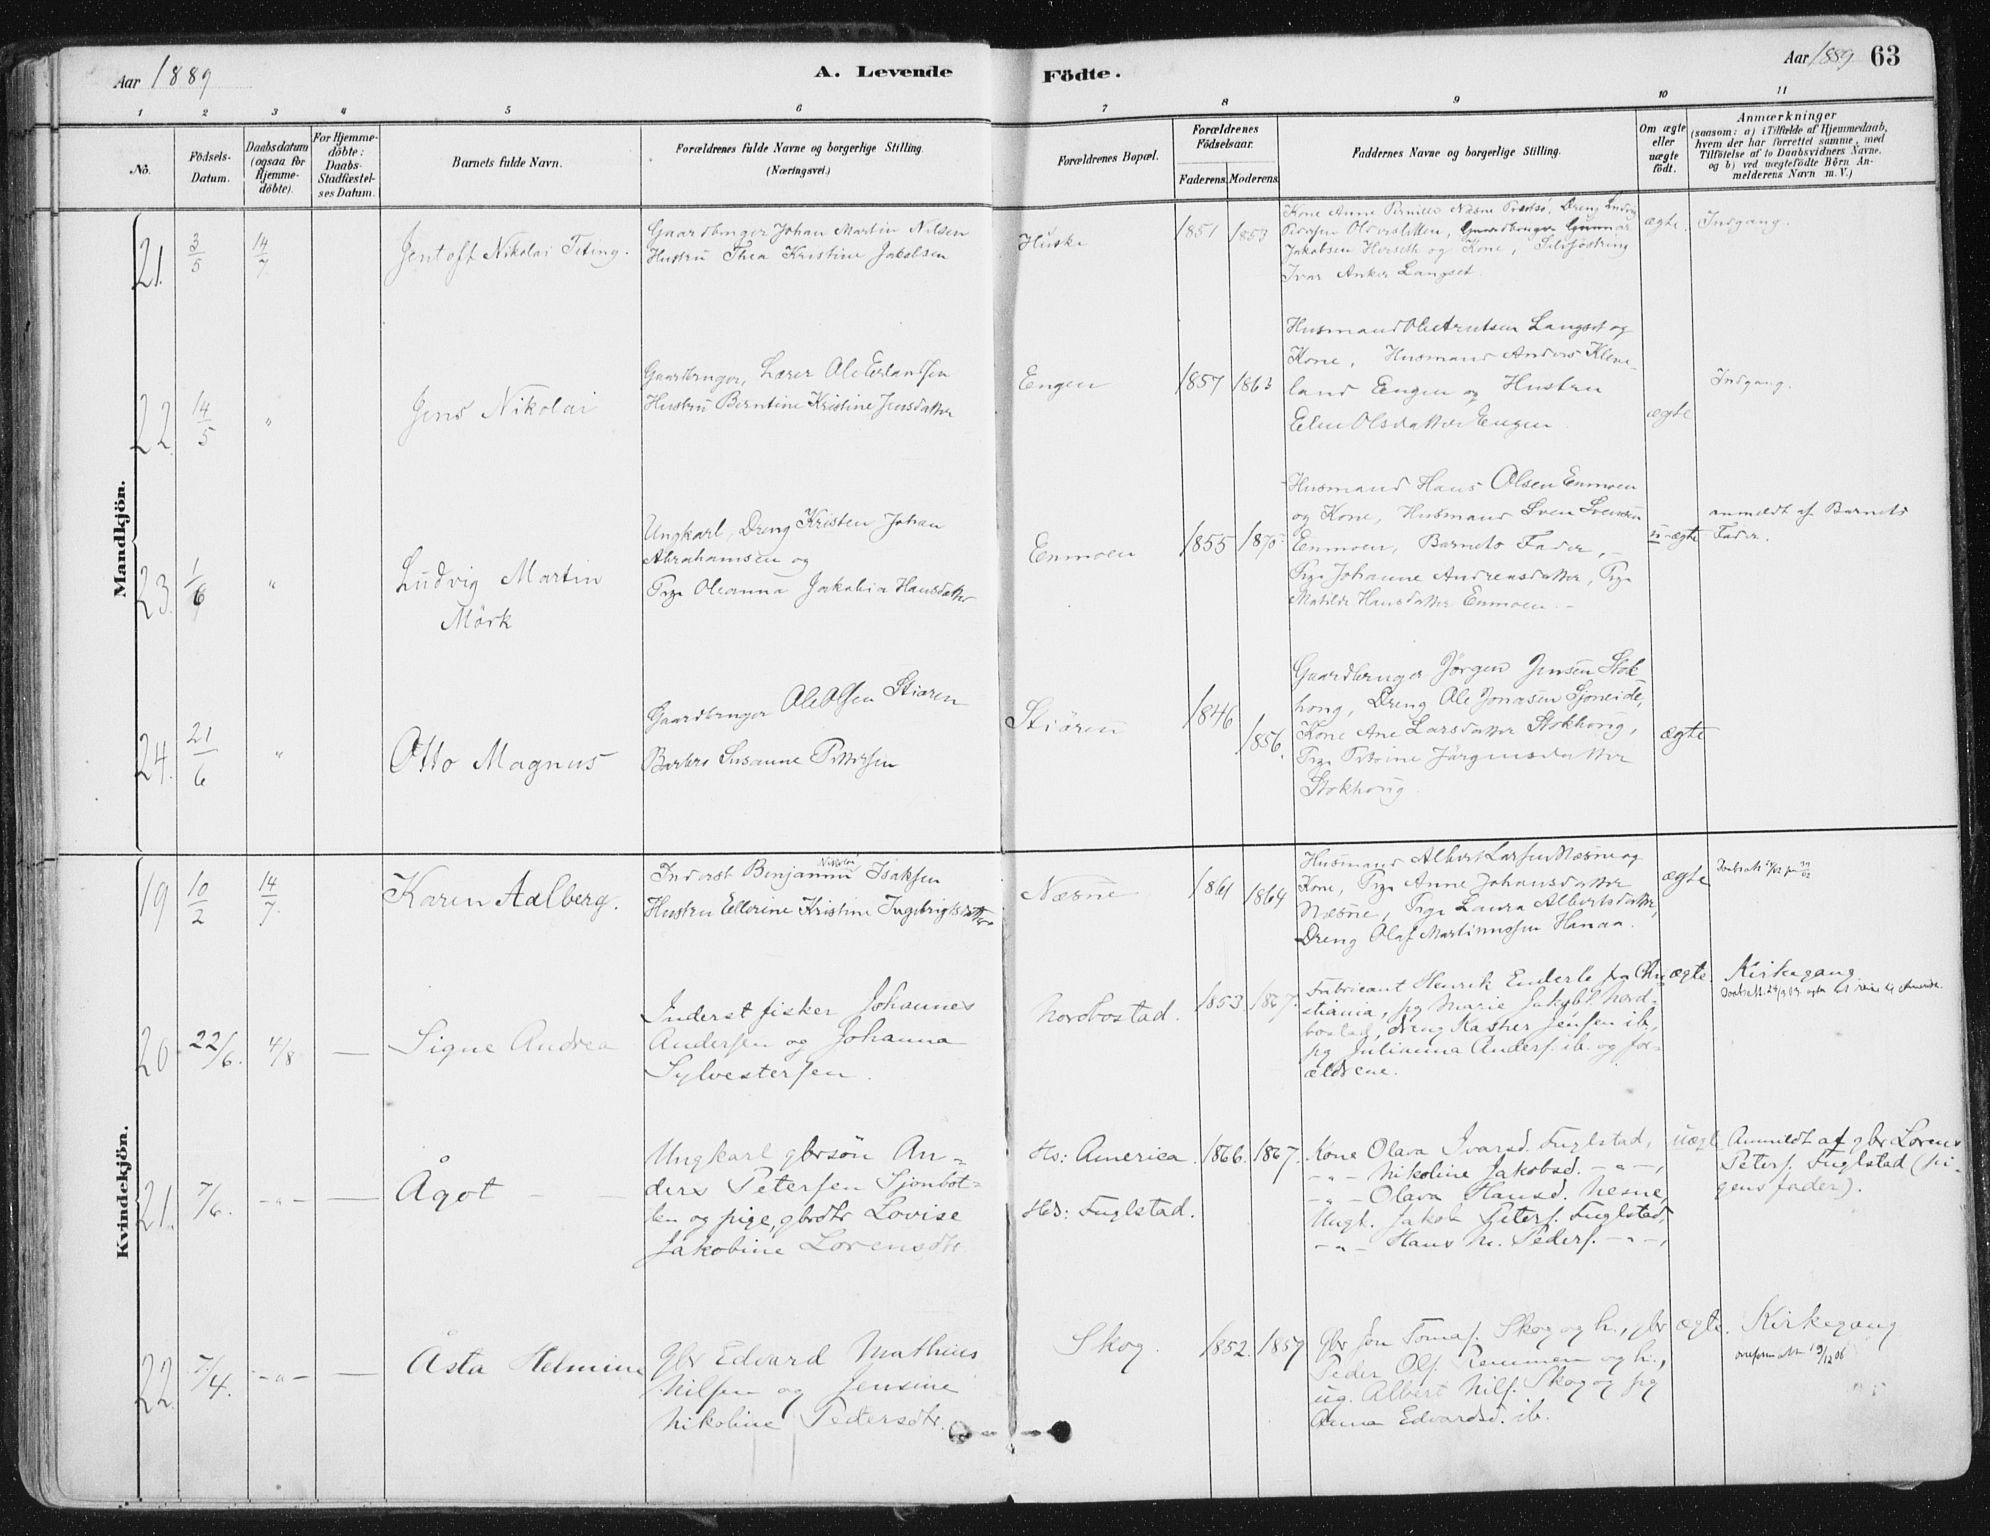 Aar 1889
A. Levende
Födte.
Aar 1889 63
1 2 3 4 5 6 7 8 9 10 11
No.
Födsels-
Datum.
Daabsdatum
(ogsaa for
Hjemme-
döbte).
For Hjemme-
döbte:
Daabs-
Stadfæstel-
ses Datum.
Barnets fulde Navn.
Forældrenes fulde Navne og borgerlige Stilling
(Næringsvei.)
Forældrenes Bopæl.
Forældrenes
Födselsaar.
Faderens. Moderens.
Faddernes Navne og borgerlige Stilling.
Om ægte
eller
uægte
födt.
Anmærkninger
(saasom: a) i Tilfælde af Hjemmedaab,
hvem der har forrettet samme, med
Tilföielse af to Daabsvidners Navne.
og b) ved uægtefödte Börn An-
melderens Navn m. V.)
Mandkjön.
21. 3/5 14/7
Jentoft Nikolai Teting.
Gaardbruger Johan Martin Nilsen
Hustru Thea Kristine Jakobsen
Huske
1851 1853
Kone Anne Pernille Næsne Dreng
Pedersen Gaardbruger Gunnar
Jakobsen Herseth og Kone,
Ivar Anker Langset.
ægte.
Indgang.
22 14/5 "
Jens Nikolai
Gaardbruger, Lærer Ole Erlandsen
Hustru Berntine Kristine Jensdatter
Engen
1857 1863
Husmand Ole Arntsen Langset og
Kone, Husmand Anders Kleve-
land Engen og Hustru
Elen Olsdatter Engen.
ægte
Indgang.
23. 1/6 "
Ludvig Martin
Mörk
Ungkarl, Dreng Kristen Johan
Abrahamsen og
Pige Oleanna Jakobia Hansdatter
Enmoen
1855 1870
Husmand Hans Olsen Enmoen
og Kone, Husmand Sven Svensen
Enmoen, Barnets Fader, -
Pige Johanne Andreasdatter, Pige
Matilde Hansdatter Enmoen. -
u-ægte
anmeldt af Barnets
Fader.
24. 21/6 "
Otto Magnus
Gaardbruger Ole Olsen Stiören
Barbro Susanne Pettersen
Stiören
1846
1856.
Gaardbruger Jørgen Jensen Stok-
hong, Dreng Ole Jonasen Sjoneide,
Kone Ane Larsdatter Stokhong,
Pige Petrine Jörgensdatter
Stokhong.
ægte
Kvindekjön.
19 10/2 14/7
Karen Aalberg.
Inderst Benjamin Nikolai Isaksen
Hustru Ellerine Kristine Ingebrigtsdatter
Næsne
1861 1864
Husmand Albert Larsen Næsne og
Kone, Pige Anne Johansdatter
Næsne, Pige Laura Albertsdatter,
Dreng Olaf Martinussen Hanaa.
ægte
20 22/6. 4/8 —
Signe Andrea
Inderst fisker Johannes
Andersen og Johanna
Sylvestersen.
Nordbostad.
1853. 1867.
Fabricant Henrik Enderle fra Chri-
stiania, pg Marie Jakobs. Nord-
bostad, dreng Kasper Jensen ib,
pg Julianna Anders. ib. og for-
ældrene.
ægte.
Kirkegang
21. 7/6. -"- —
Ågot
Ungkarl gbrsön An-
ders Petersen Sjonbot-
ten og pige, gbrdtr Lovise
Jakobine Lorensdtr
Hs: America.
Hds: Fuglstad.
1866. 1867.
Kone Olava Ivarsd. Fuglstad,
-"- Nikoline Jakobsd. -"-,
-"- Olava Hansd. Nesne,
Ungk. Jakob Peters. Fuglstad,
-"- Hans N. Peders. -"-,
uægt.
Anmeldt af gbr Lorens
Peters. Fuglstad (pi-
gens fader).
22. 7/4. -"- —
Åsta Helmine
Gbr Edvard Mathias
Nilsen og Jensine
Nikoline Pedersdtr.
Skog.
1852. 1859
Gbr Jon Tomas. Skog og h., gbr
Peder Ols. Remmen og h.,
ug. Albert Nils. Skog og pg
Anna Edvardsd. ib.
ægte.
Kirkegang
19/12 06